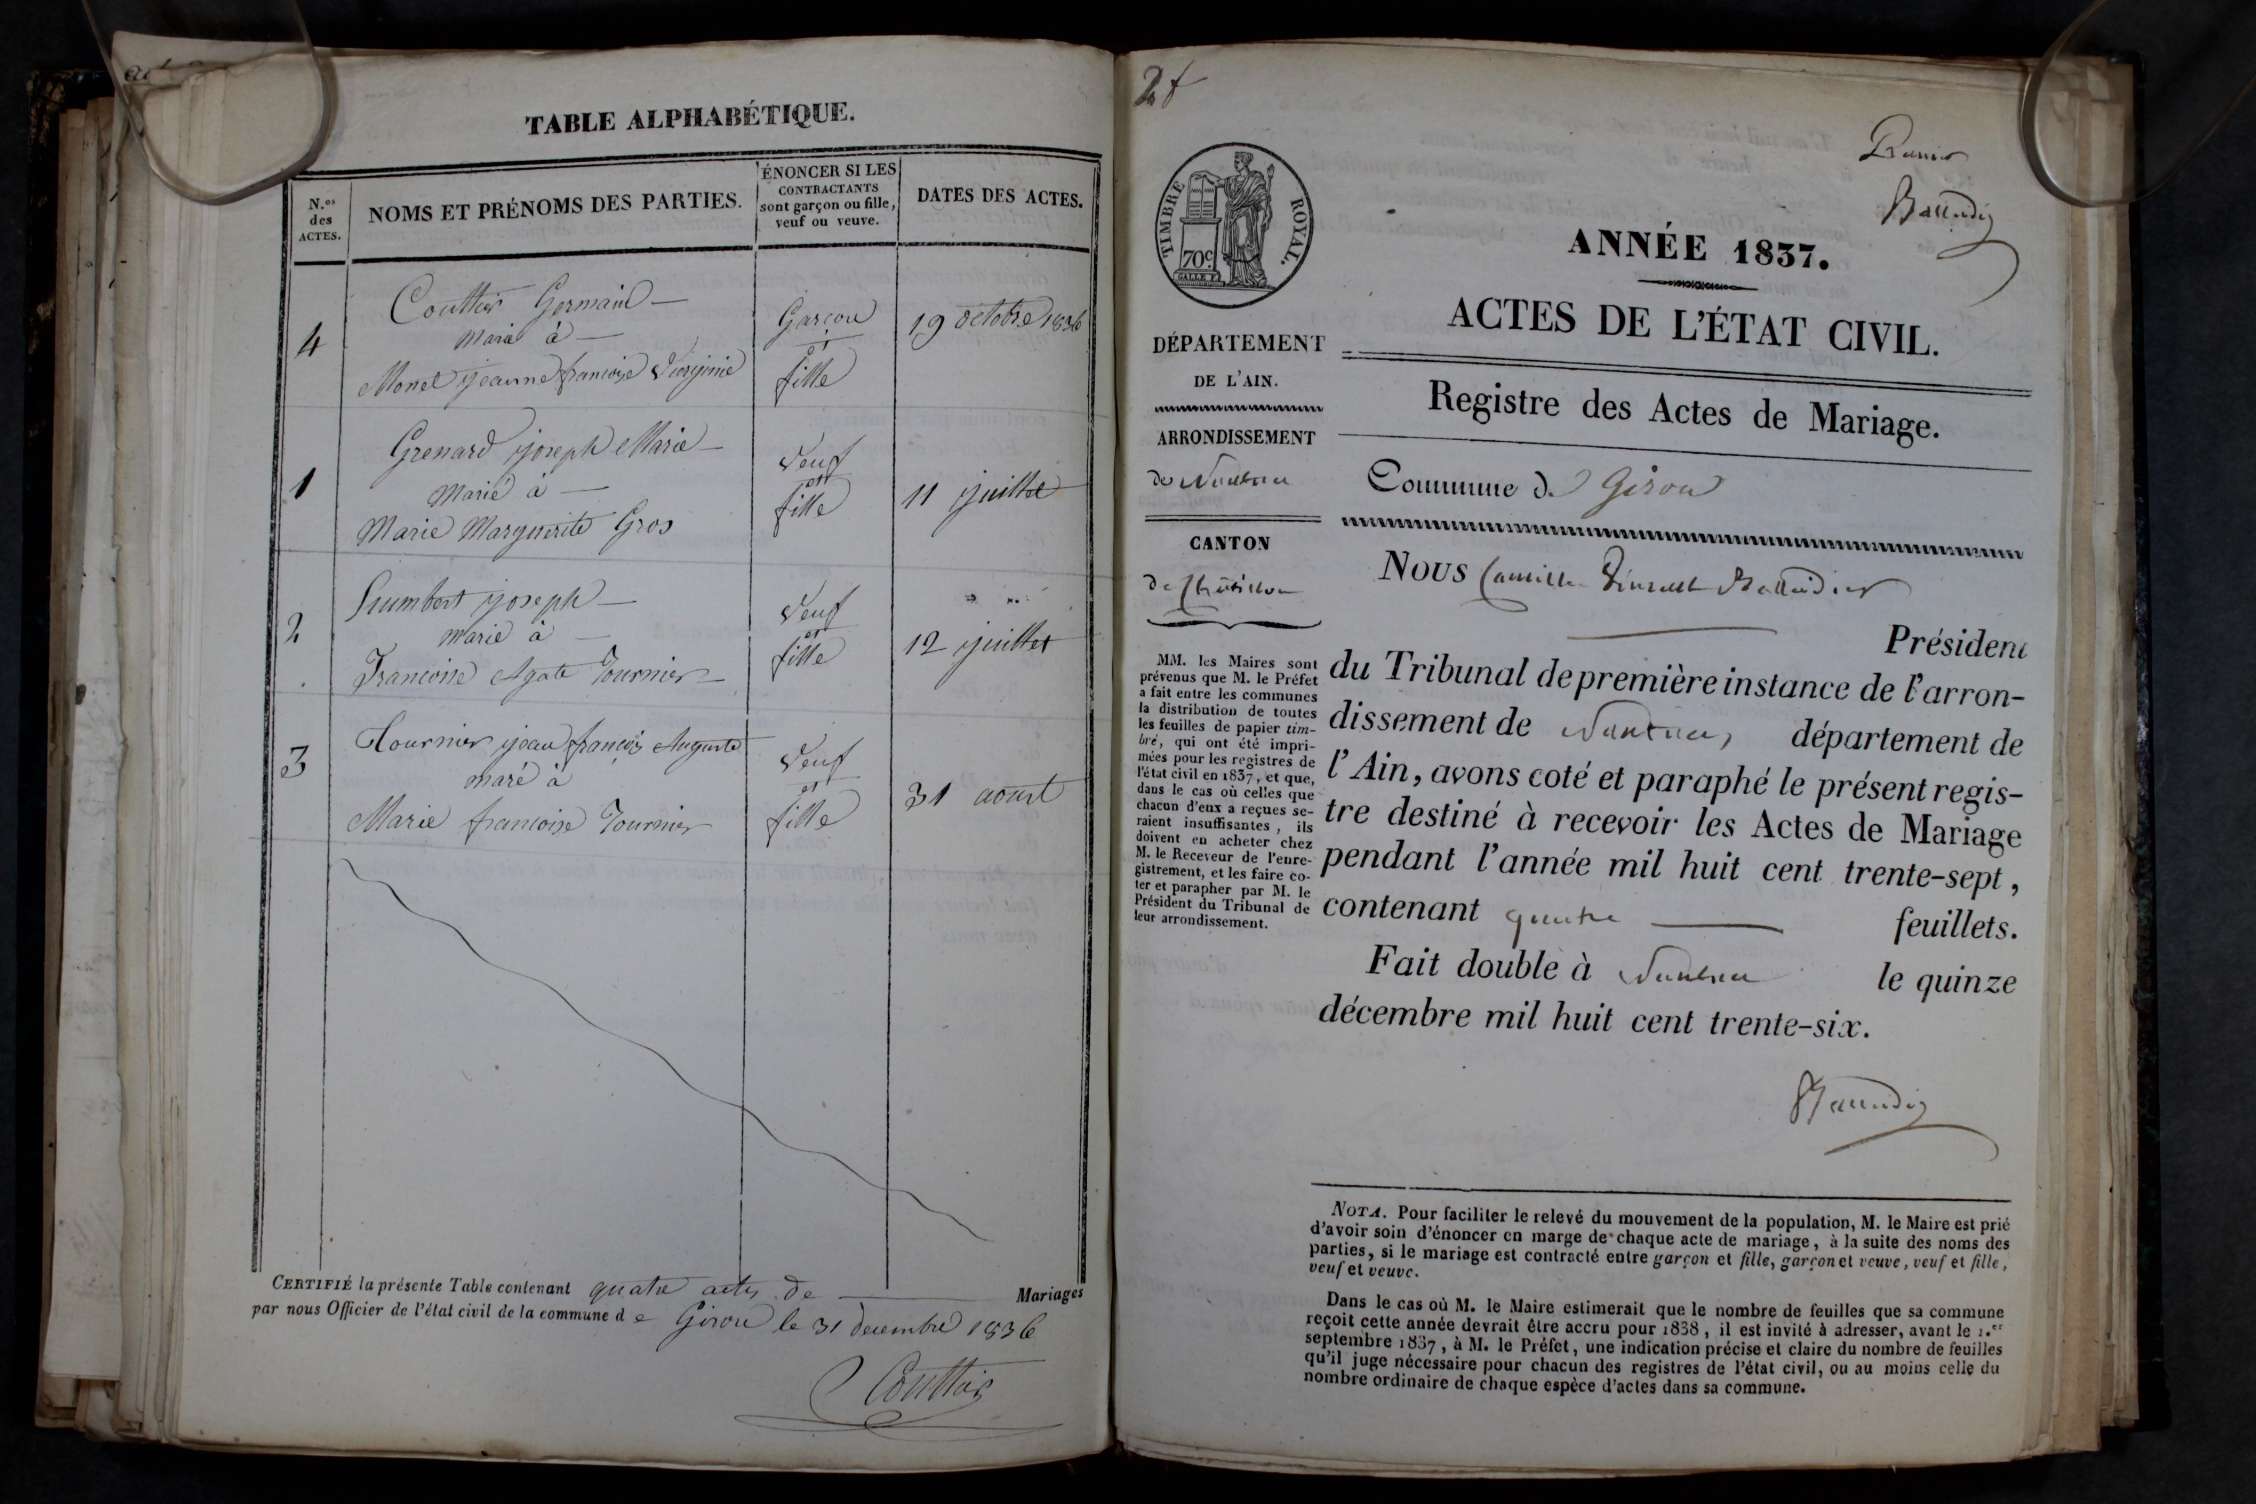 TABLE ALPHABÉTIQUE.
N.os des ACTES.
NOMS ET PRÉNOMS DES PARTIES.
ÉNONCER SI LES
CONTRACTANTS
sont garçon ou fille,
veuf ou veuve.
DATES DES ACTES.
4
Couttier Germain
marié à
Monet jeanne françoise Virginie
Garçon
et
fille
19 octobre 1836
1
Grenard joseph Marie
marié à
Marie Marguerite Gros
Veuf
et
fille
11 juillet
2
Humbert joseph
marié à
Françoise Agate Tournier
Veuf
et
fille
12 juillet
3
Tournier jean françois Auguste
marié à
Marie françoise Tournier
Veuf
et
fille
31 aoust
CERTIFIÉ la présente Table contenant quatre actes de Mariages
par nous Officier de l'état civil de la commune d e Giron le 31 decembre 1836
2f
TIMBRE ROYAL.
70c.
DÉPARTEMENT
DE L'AIN.
ARRONDISSEMENT
de Nantua
CANTON
de Chatillon
MM. les Maires sont
prévenus que M. le Préfet
a fait entre les communes
la distribution de toutes
les feuilles de papier tim-
bré, qui ont été impri-
mées pour les registres de
l'état civil en 1837, et que,
dans le cas où celles que
chacun d'eux a reçues se-
raient insuffisantes, ils
doivent en acheter chez
M. le Receveur de l'enre-
gistrement, et les faire co-
ter et parapher par M. le
Président du Tribunal de
leur arrondissement.
ANNÉE 1837.
ACTES DE L'ÉTAT CIVIL.
Registre des Actes de Mariage.
Commune de Giron
Nous Camille
Président
du Tribunal de première instance de l'arron-
dissement de Nantua, département de
l'Ain, avons coté et paraphé le présent regis-
tre destiné à recevoir les Actes de Mariage
pendant l'année mil huit cent trente-sept,
contenant quatre feuillets.
Fait double à Nantua le quinze
décembre mil huit cent trente-six.
NOTA. Pour faciliter le relevé du mouvement de la population, M. le Maire est prié
d'avoir soin d'énoncer en marge de chaque acte de mariage, à la suite des noms des
parties, si le mariage est contracté entre garçon et fille, garçon et veuve, veuf et fille,
veuf et veuve.
Dans le cas où M. le Maire estimerait que le nombre de feuilles que sa commune
reçoit cette année devrait être accru pour 1838, il est invité à adresser, avant le 1.er
septembre 1837, à M. le Préfet, une indication précise et claire du nombre de feuilles
qu'il juge nécessaire pour chacun des registres de l'état civil, ou au moins celle du
nombre ordinaire de chaque espèce d'actes dans sa commune.